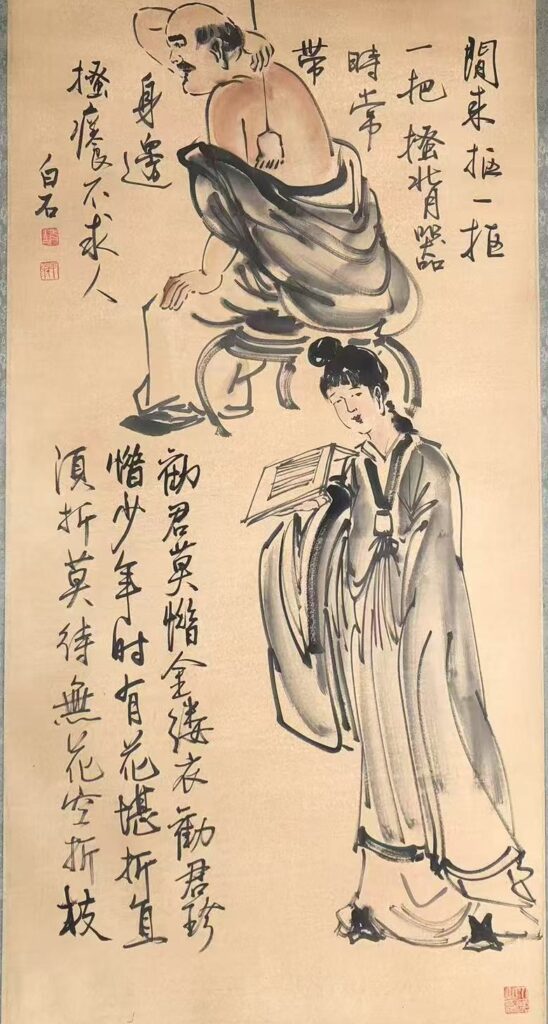 閒来抠一抠
一把搔背器
時常
带
身邊
搔癢不求人
白石
勸君莫惜金缕衣勸君珍
惜少年时有花堪折直
須折莫待無花空折枝